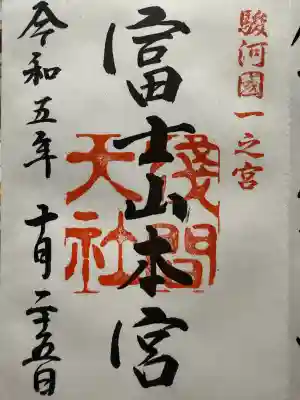 駿河國一之宮
冨士山本宮
淺間
天社
令和五年 十月二十五日